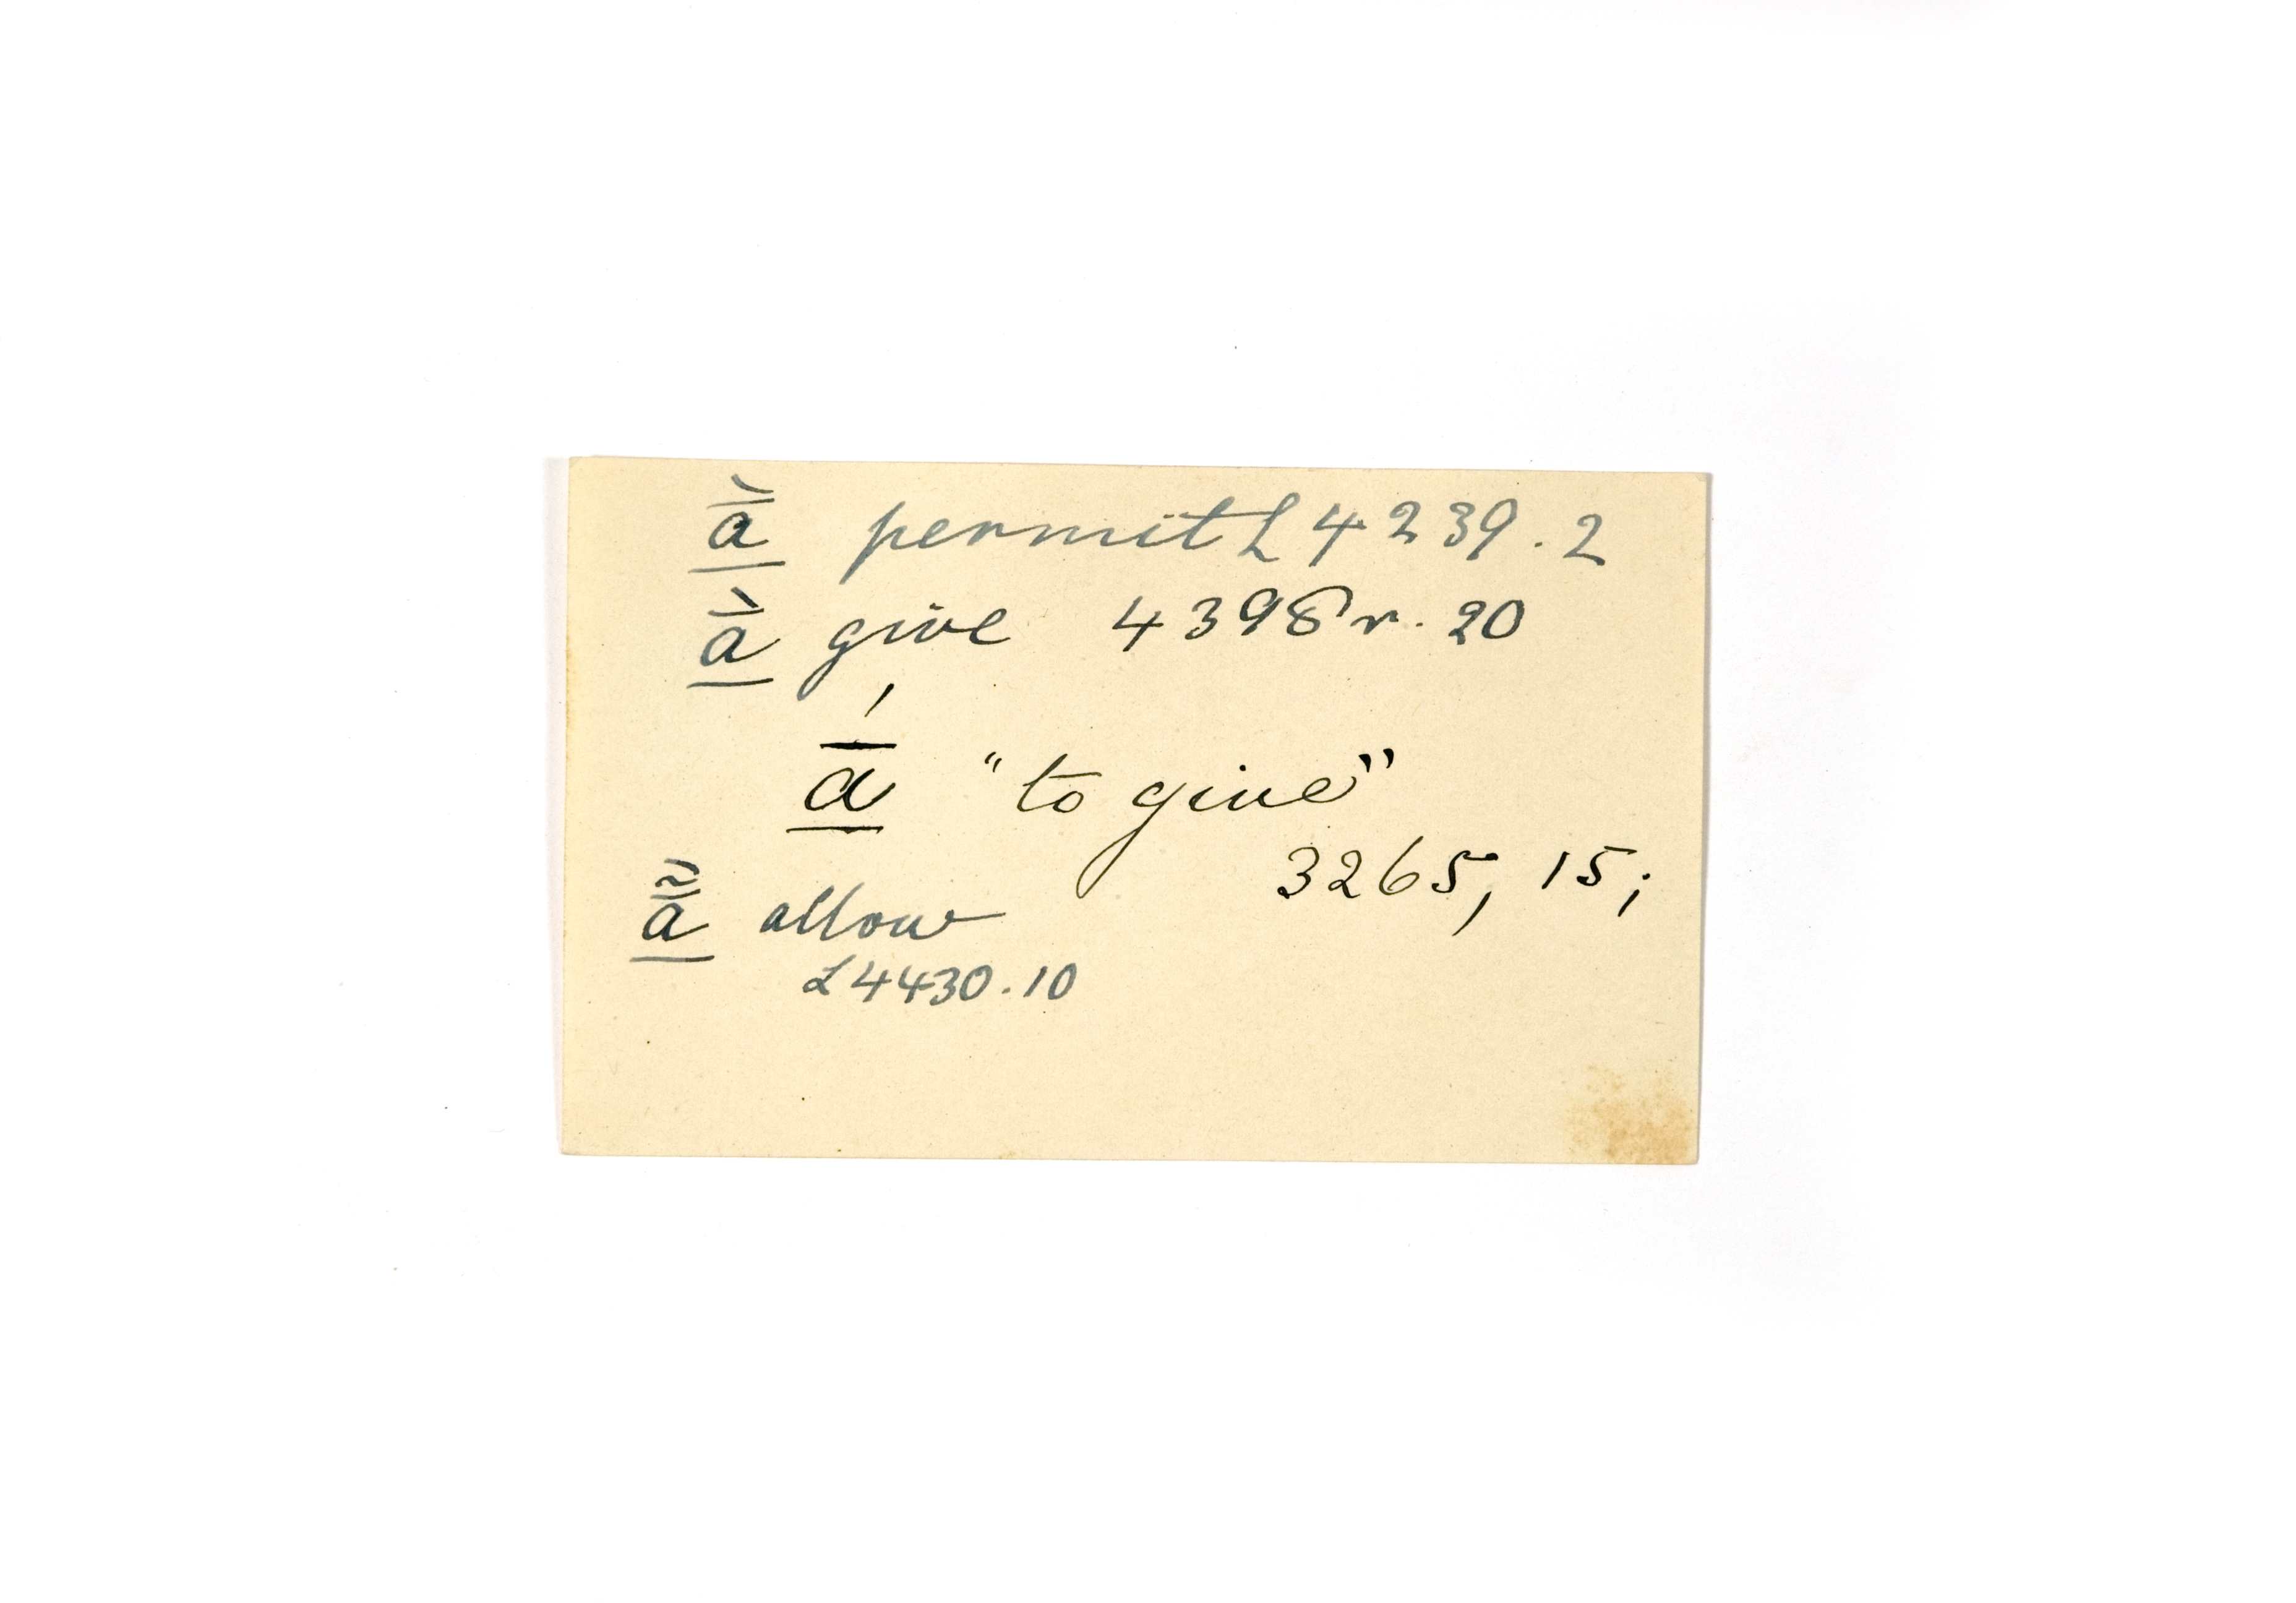 ā̱̀ permit L 4239.2
ā̱̀ give 4398 r. 20
ā̱́ "to give"
3265, 15;
ā̱̃̀ allow
L 4430.10